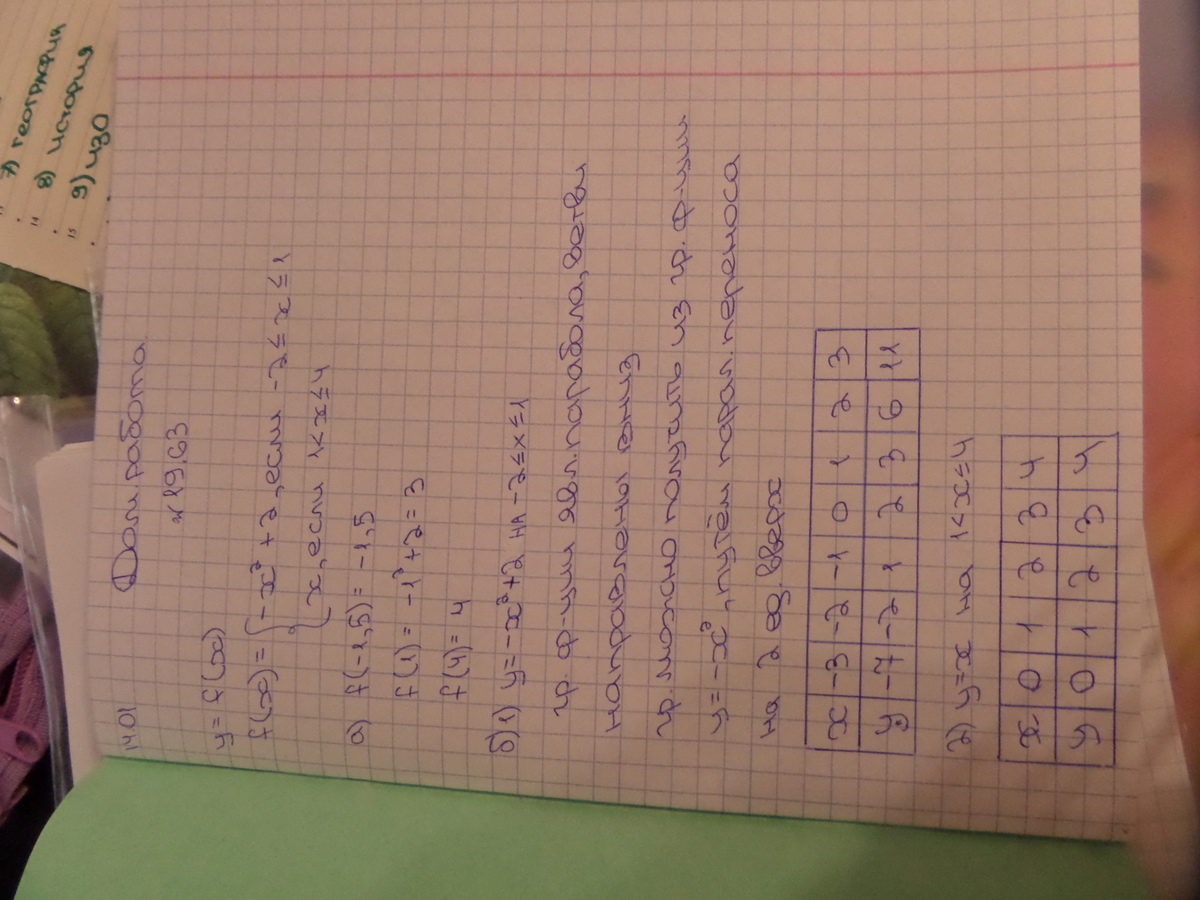 7) география
8) история
9) ИЗО
14
15
14.01
Дом. работа
№ 19.63
y = f(x)
f(x) = { -x² + 2, если -2 ≤ x ≤ 1
x, если 1 < x ≤ 4
а) f(-1,5) = -1,5
f(1) = -1² + 2 = 3
f(4) = 4
б) 1) y = -x² + 2 на -2 ≤ x ≤ 1
гр. ф-ции явл. парабола, ветви
направлены вниз
гр. можно получить из гр. ф-ции
y = -x², путём парал. переноса
на 2 ед. вверх
x -3 -2 -1 0 1 2 3
y -7 -2 1 2 3 6 11
2) y = x на 1 < x ≤ 4
x 0 1 2 3 4
y 0 1 2 3 4